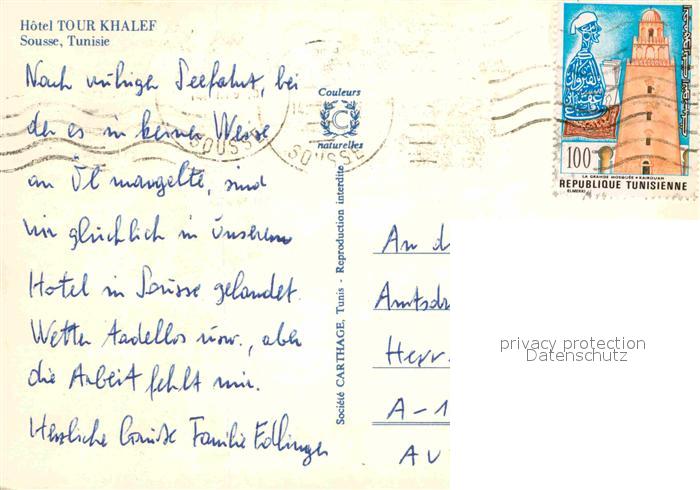 Hôtel TOUR KHALEF
Sousse, Tunisie
Nach ruhiger Seefahrt, bei
der es in keiner Weise
an Öl mangelte, sind
wir glücklich in unserem
Hotel in Sousse gelandet.
Wetter tadellos usw., aber
die Arbeit fehlt mir.
Herzliche Grüße Familie Edlinger
Couleurs
C
naturelles
SOUSSE
SOUSSE
Société CARTHAGE, Tunis - Reproduction interdite
100
LA GRANDE MOSQUÉE • KAIROUAN
REPUBLIQUE TUNISIENNE
ELMEKKI
An d
Amtsd
Herr
A-1
AU
privacy protection
Datenschutz